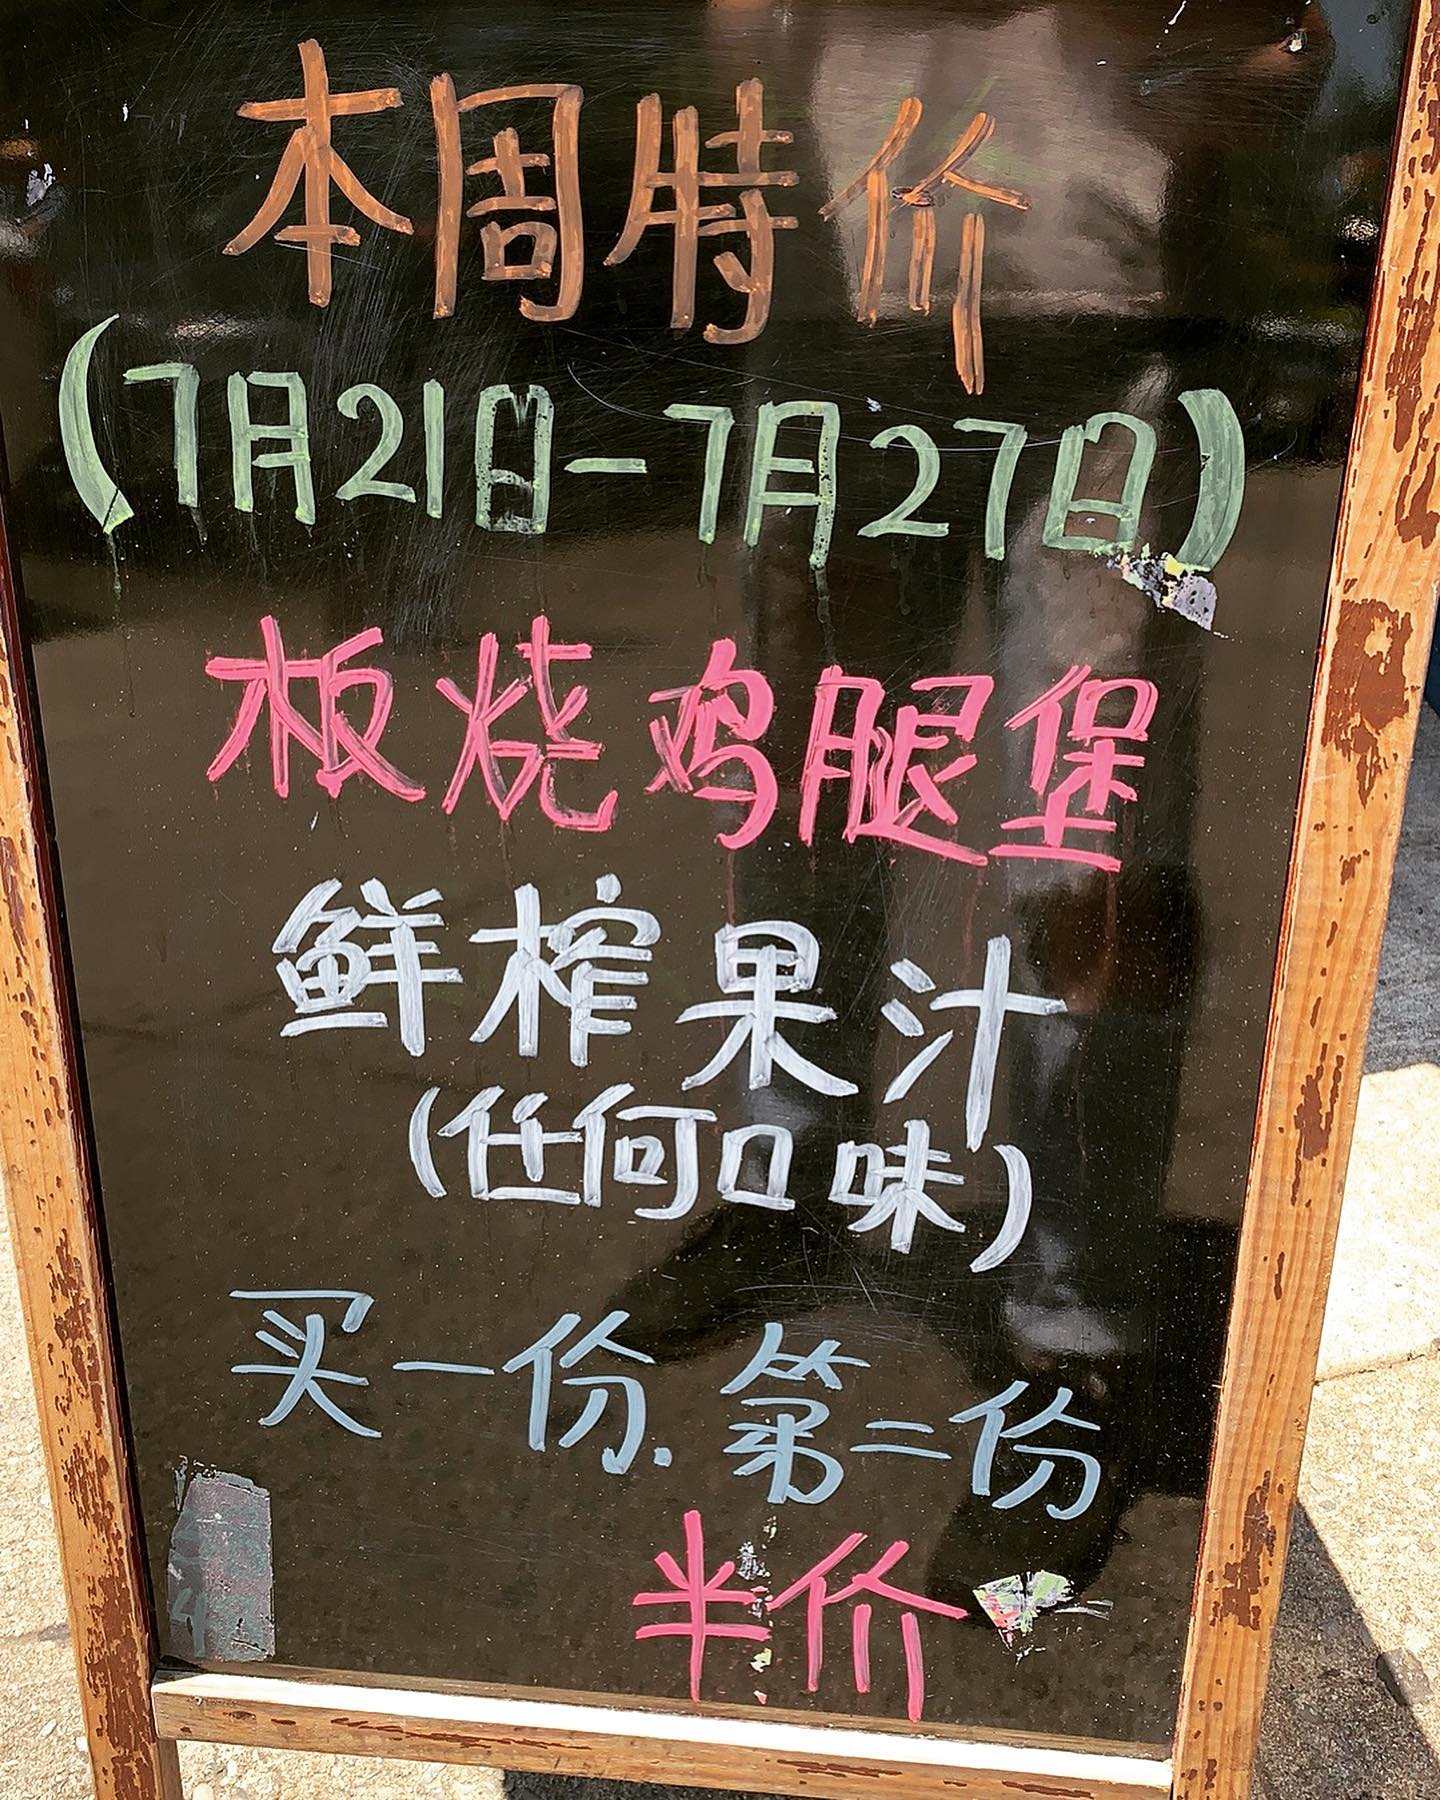 本周特价
(7月21日-7月27日)
板烧鸡腿堡
鲜榨果汁
(任何口味)
买一份.第二份
半价